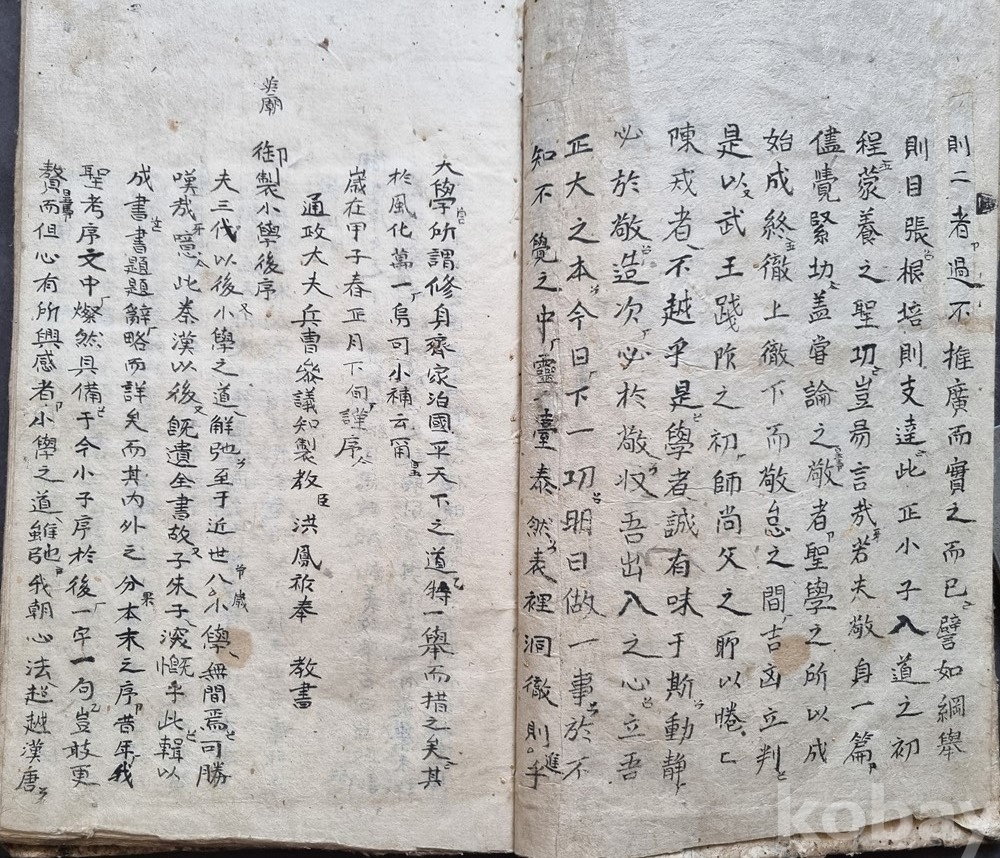 則二者過不推廣而實之而已譬如綱舉
則目張根培則支達此正小子入道之初
程蒙養之聖功豈易言哉若夫敬身一篇
儘覺緊切盖嘗論之敬者聖學之所以成
始成終徹上徹下而敬怠之間吉凶立判
是以武王踐阼之初師尚父之所以惓〻
陳戒者不越乎是學者誠有味于斯動靜
必於敬造次必於敬收吾出入之心立吾
正大之本今日下一功明日做一事於不
知不覺之中靈臺泰然表裡洞徹則進乎
大學所謂修身齊家治國平天下之道特一舉而措之矣其
於風化萬一烏可小補云爾
歲在甲子春正月下旬謹序
通政大夫兵曹參議知製敎臣洪鳳祚奉 敎書
英廟 御製小學後序
夫三代以後小學之道解弛至于近世八歲小學無間焉可勝
嘆哉噫此秦漢以後旣遺全書故子朱子深慨乎此輯以
成書書題題辭略而詳矣而其內外之分本末之序昔年我
聖考序文中燦然具備于今小子序於後一字一句豈敢更
贅而但心有所興感者小學之道雖弛我朝心法超越漢唐
kobay